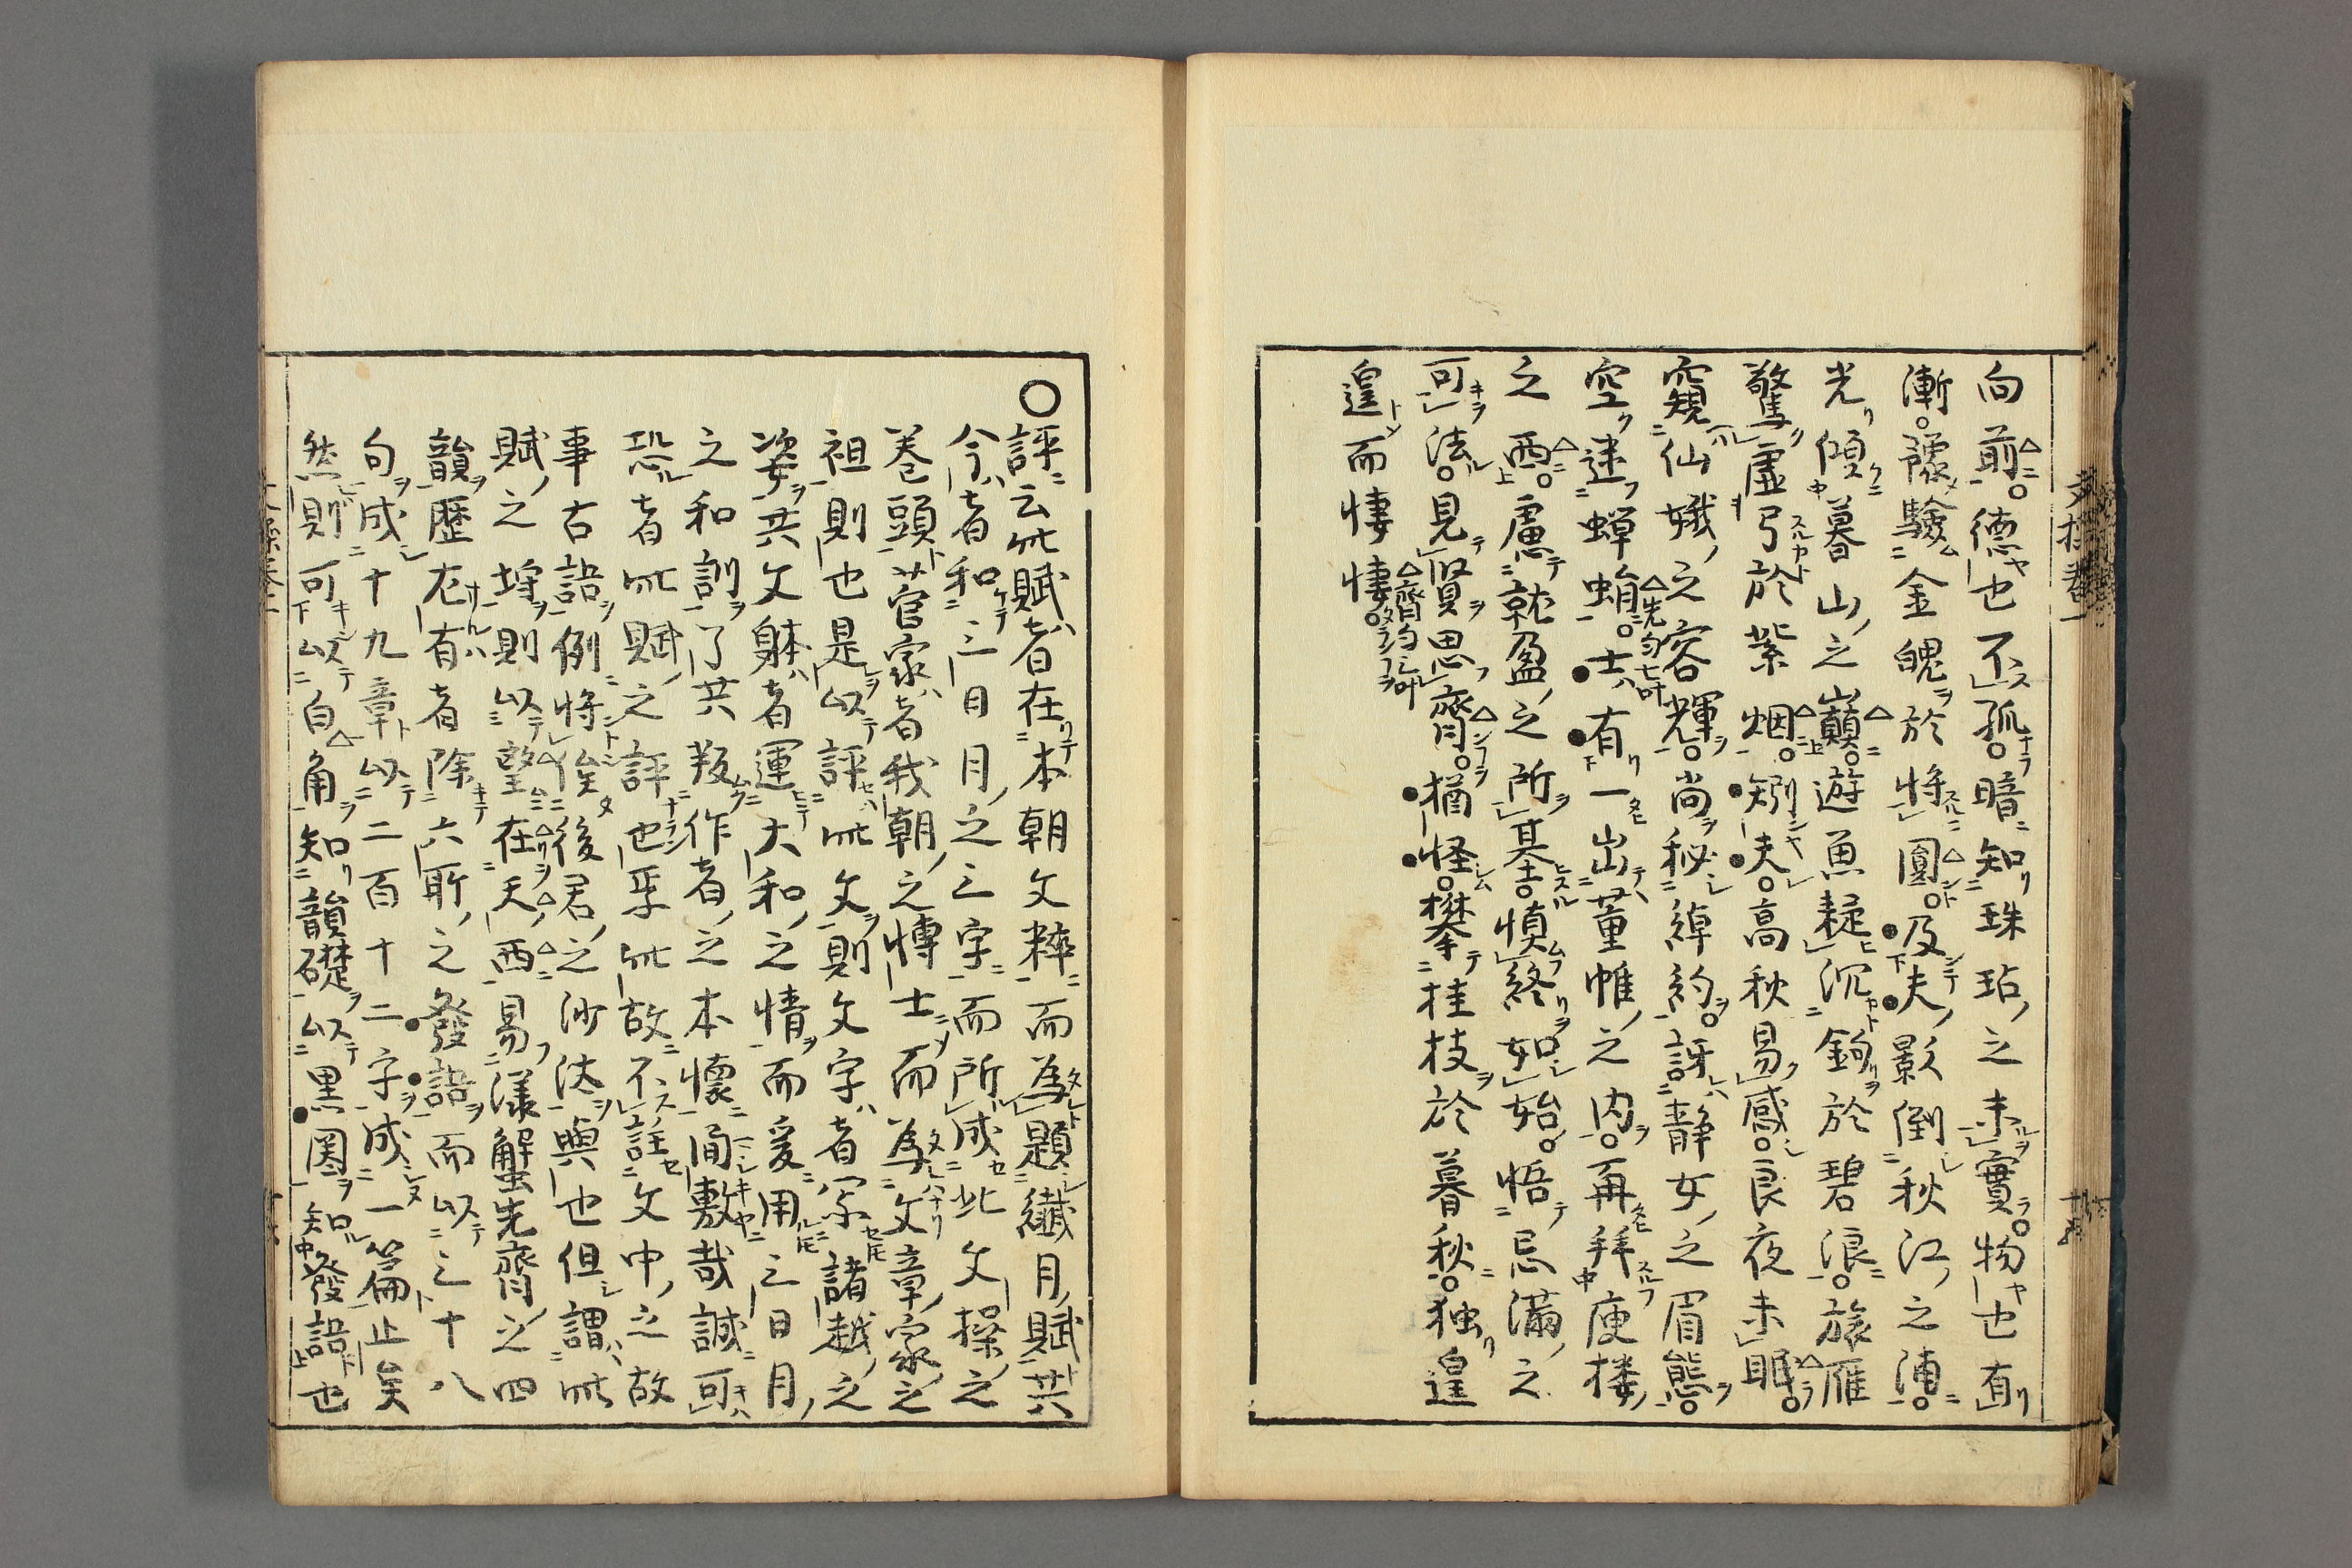 向前。德也不孤。暗知珠玷之未實。物也有
漸。豫驗金魄於將圓。及夫影倒秋江之浦。
光傾暮山之巔。遊魚疑沉鉤於碧浪。旅雁
驚虛弓於紫烟。矧夫。高秋易感。良夜未眠。
窺仙娥之容輝。尚秘綽約。訝靜女之眉態。
空迷蟬蛸。士有一出董帷之內。再拜庾樓
之西。慮就盈之所基。慎終如始。悟忌滿之
可法。見賢思齊。猶怪。攀桂枝於暮秋。独遑
遑而悽悽。
○評云此賦者在本朝文粹而為題纖月賦共
今者和三日月之三字而所成此文操之
卷頭菅家者我朝之博士而為文章家之
祖則也是以評此文則文字者家諸越之
姿共文躰者運大和之情而爰用三日月
之和訓了共叛作者之本懷面敷哉誠可
恐者此賦之評也乎此故不註文中之故
事古語例將俟後君之沙汰與也但謂此
賦之埒則以望在天西易漾蟹先齊之四
韻歷尤有者除六所之發語而以三十八
句成十九章以二百十二字成一篇止矣
然則可以白角知韻礎以黑圈知發語也